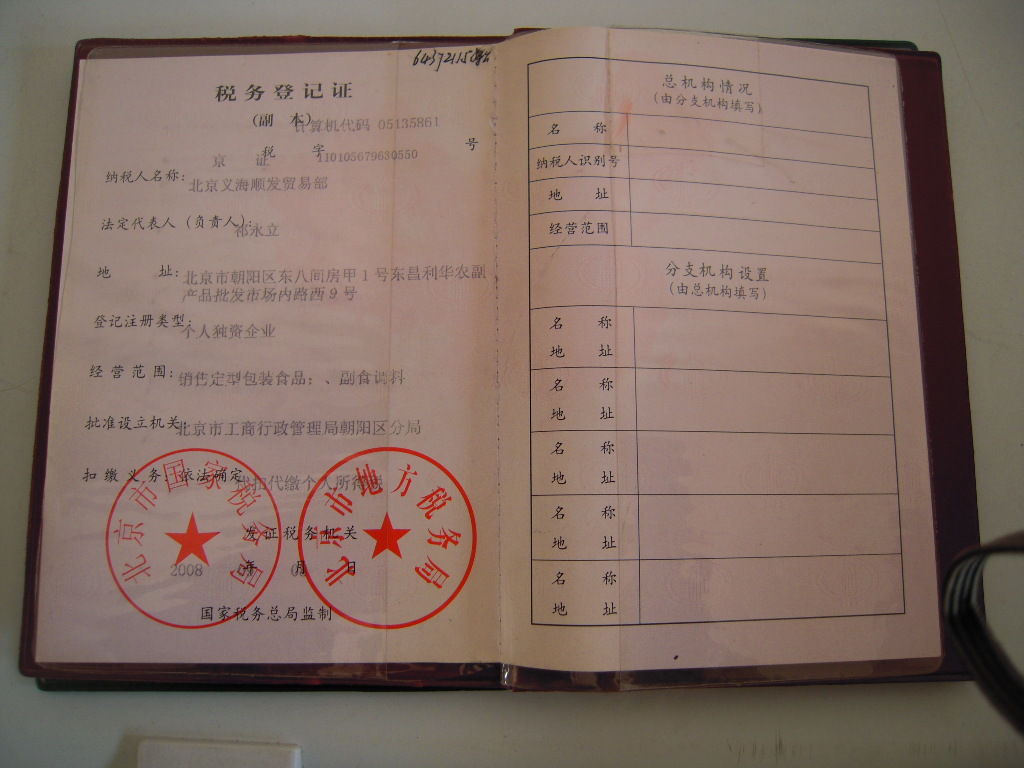 税务登记证
(副 本)
计算机代码 05135861
税 字 号
京 证 110105679630550
纳税人名称:北京义海顺发贸易部
法定代表人(负责人):祁永立
地 址:北京市朝阳区东八间房甲1号东昌利华农副
产品批发市场内路西9号
登记注册类型:个人独资企业
经营范围:销售定型包装食品;、副食调料
批准设立机关:北京市工商行政管理局朝阳区分局
扣缴义务:依法确定
代扣代缴个人所得税
北京市国家税务局
北京市地方税务局
发证税务机关
2008 年 月 日
国家税务总局监制
总机构情况
(由分支机构填写)
名 称
纳税人识别号
地 址
经营范围
分支机构设置
(由总机构填写)
名 称
地 址
名 称
地 址
名 称
地 址
名 称
地 址
名 称
地 址